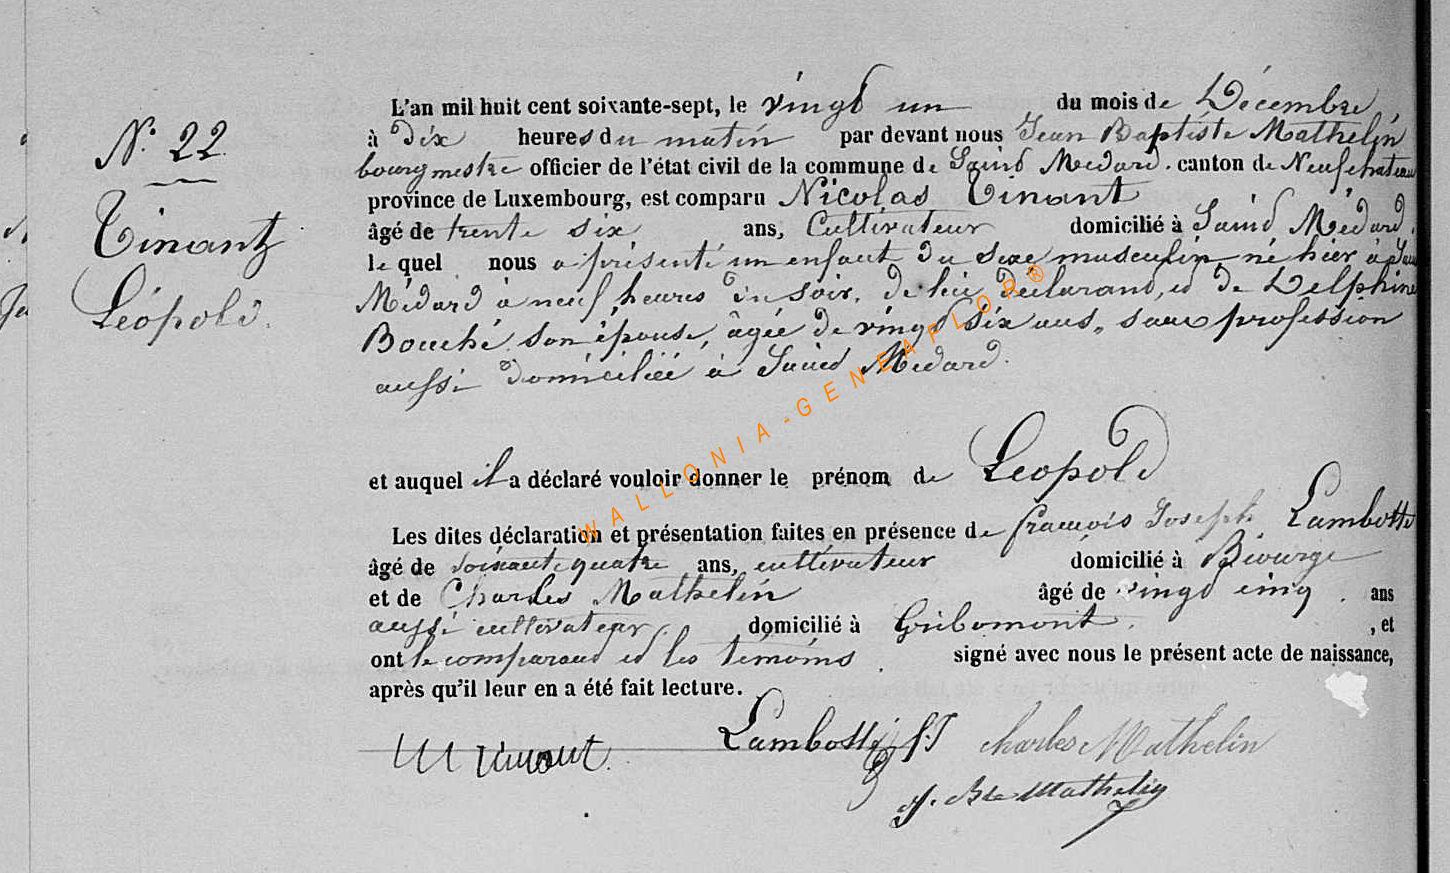 N.° 22.
Tinant
Léopold.
L'an mil huit cent soixante-sept, le vingt un du mois de Décembre
à dix heures du matin par devant nous Jean Baptiste Mathelin
bourgmestre officier de l'état civil de la commune de Saint Médard. canton de Neufchateau
province de Luxembourg, est comparu Nicolas Tinant
âgé de trente six ans, Cultivateur domicilié à Saint Médard.
lequel nous a présenté un enfant du sexe masculin né hier à Saint
Médard à neuf heures du soir, de lui déclarant, et de Delphine
Bouché son épouse, âgée de vingt six ans, sans profession
aussi domiciliée à Saint Médard.
et auquel il a déclaré vouloir donner le prénom de Léopold
Les dites déclaration et présentation faites en présence de françois Joseph Lambotte
âgé de soixante quatre ans, cultivateur domicilié à Biourge
et de Charles Mathelin âgé de vingt cinq. ans
aussi cultivateur, domicilié à Gribomont. , et
ont le comparant et les témoins. signé avec nous le présent acte de naissance,
après qu'il leur en a été fait lecture.
Tinant. Lambotte f.J Charles Mathelin
J. Bte Mathelin
WALLONIA-GENEAFLOR®